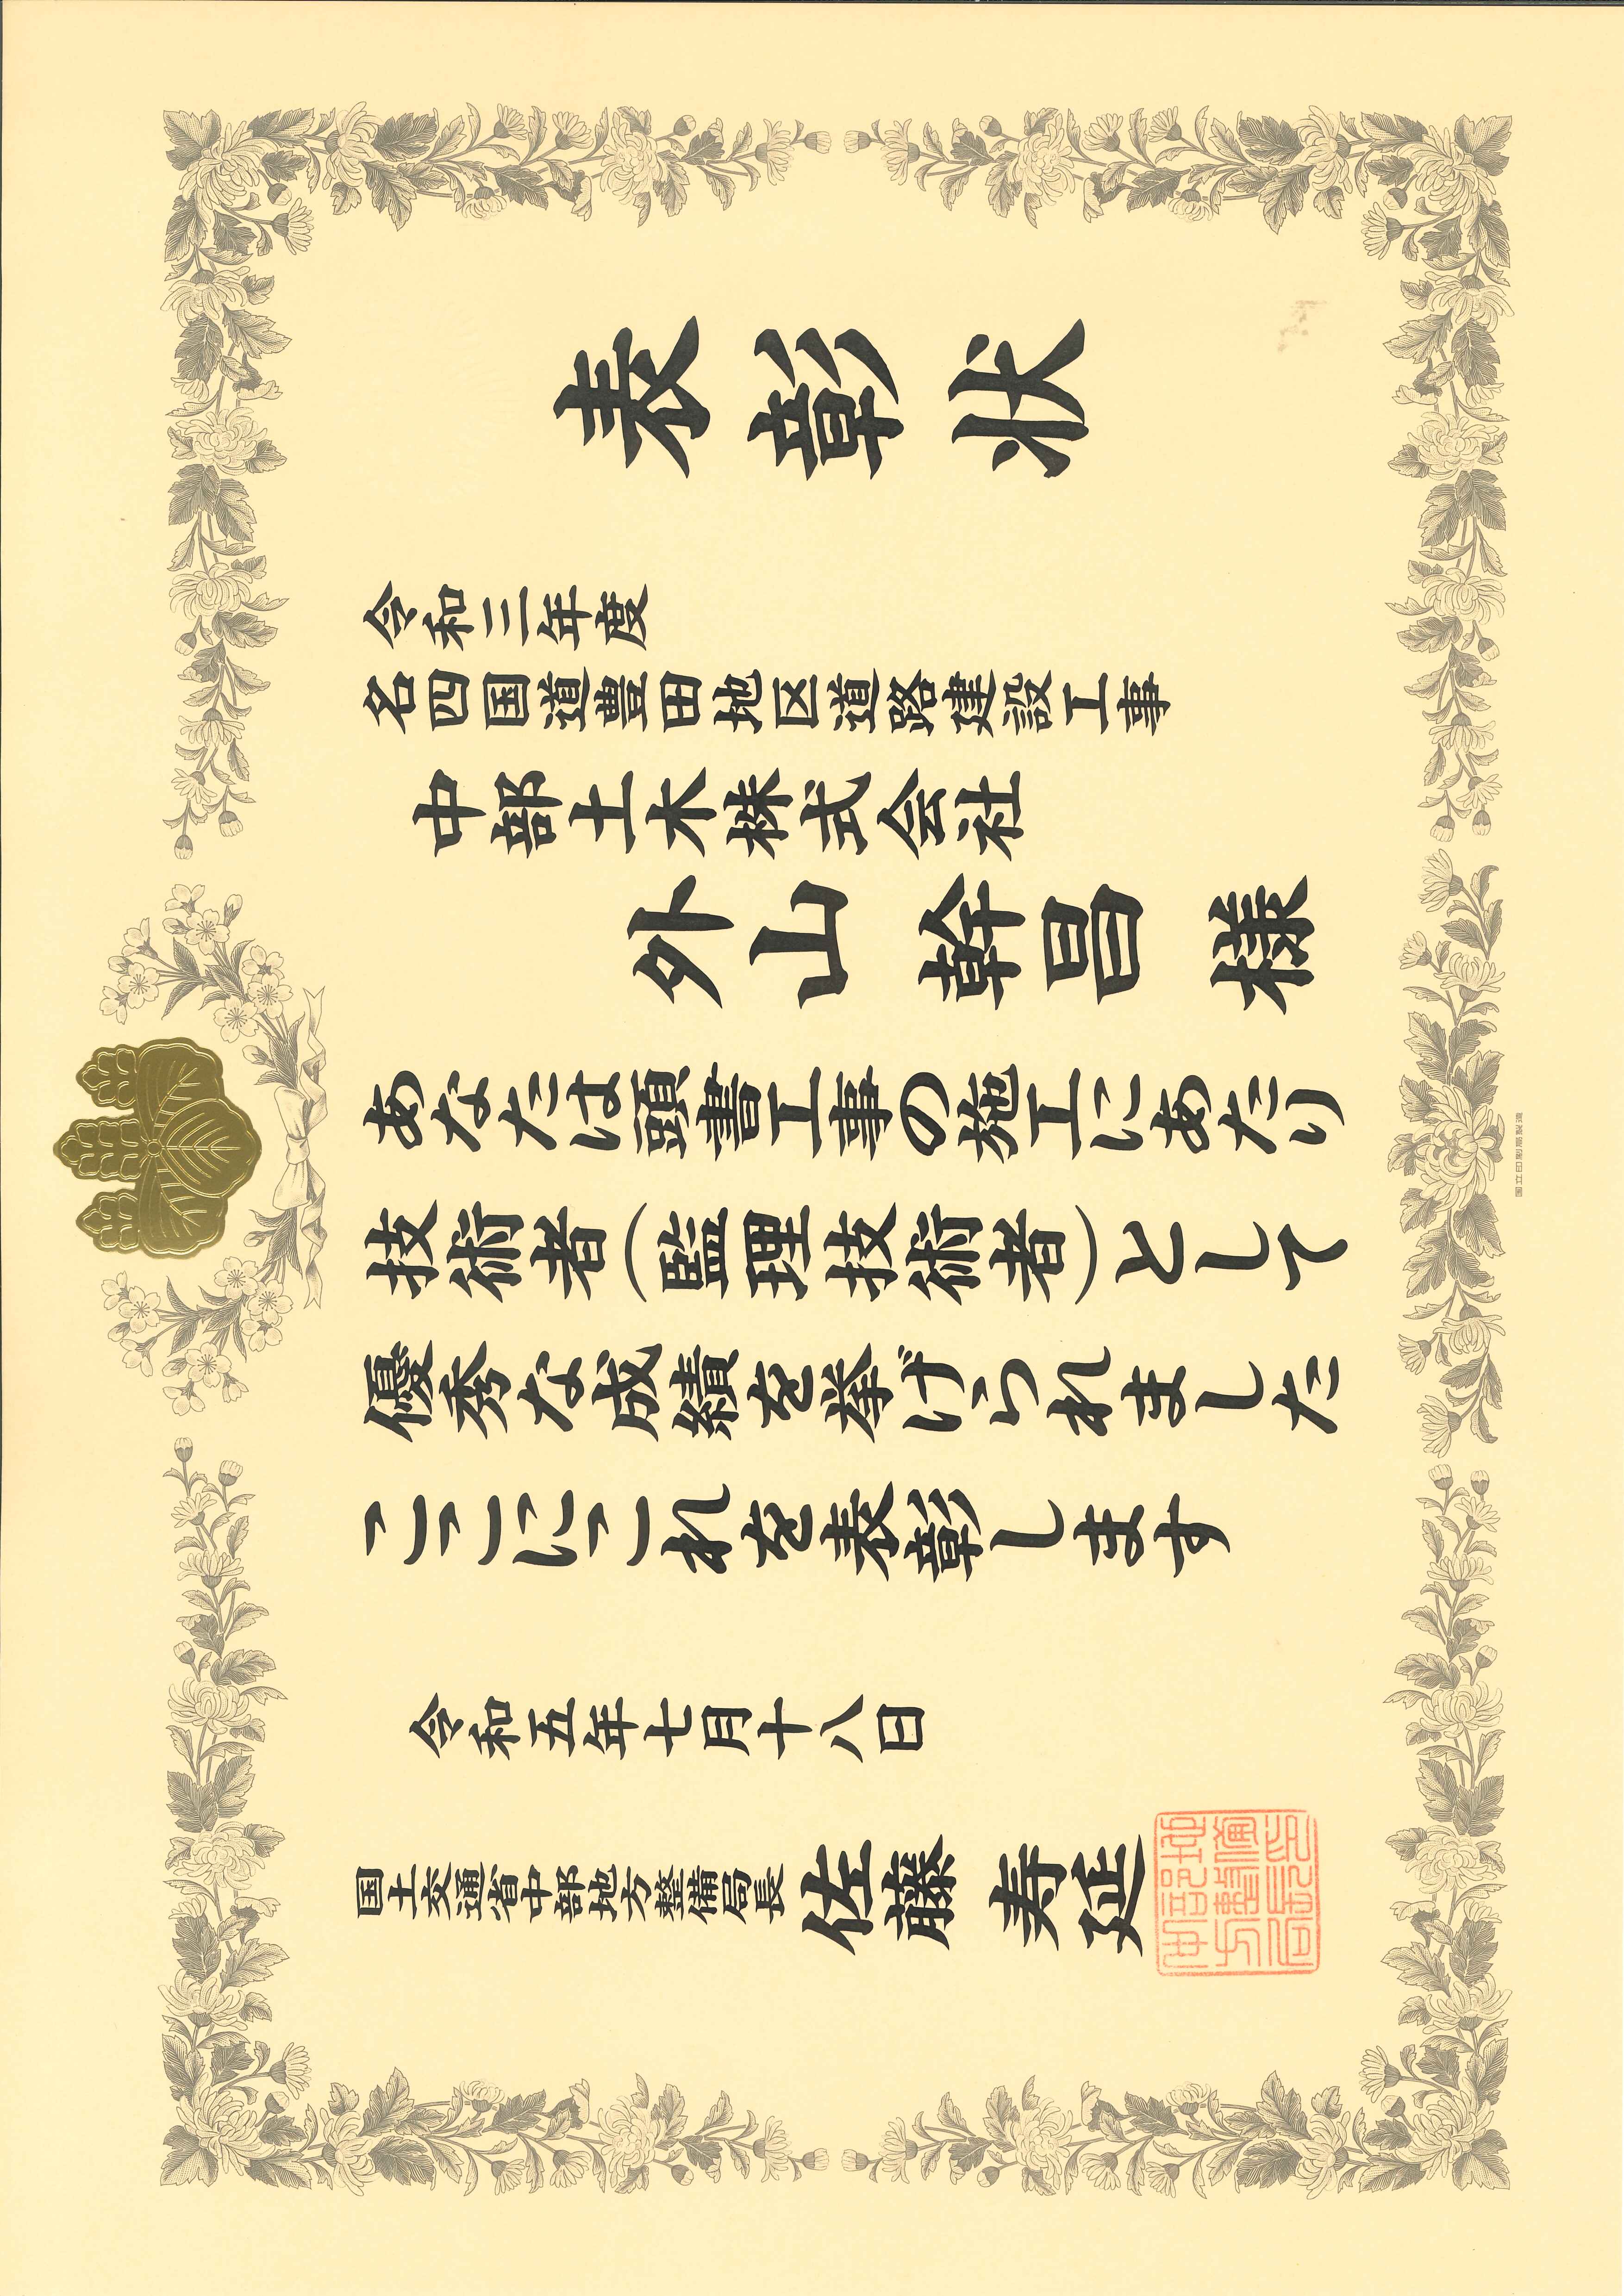 表彰状
令和三年度
名四国道豊田地区道路建設工事
中部土木株式会社
外山 幹昌 様
あなたは頭書工事の施工にあたり
技術者(監理技術者)として
優秀な成績を挙げられました
ここにこれを表彰します
令和五年七月十八日
国土交通省中部地方整備局長 佐藤 寿延
国立印刷局製造